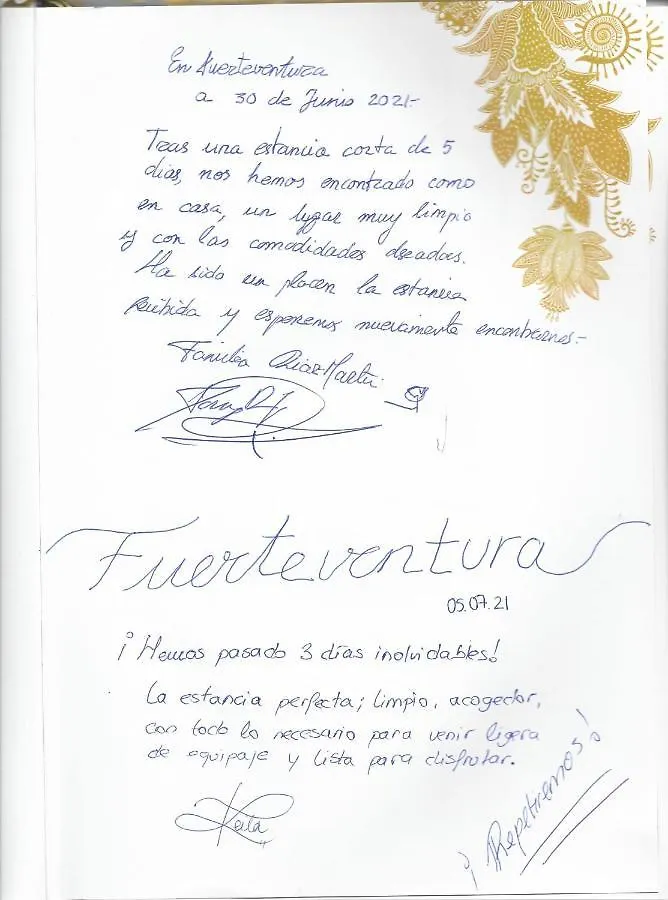 En Fuerteventura
a 30 de Junio 2021-
Tras una estancia corta de 5
dias, nos hemos encontrado como
en casa, un lugar muy limpio
y con las comodidades dseadas.
Ha sido un placer la estancia
recibida y esperemos nuevamente encontrarnos-
Familia Diaz Martin
Fuerteventura
05.07.21
¡Hemos pasado 3 días inolvidables!
La estancia perfecta; limpio, acogedor,
con todo lo necesario para venir ligera
de equipaje y lista para disfrutar.
Keila
¡Repetiremos!